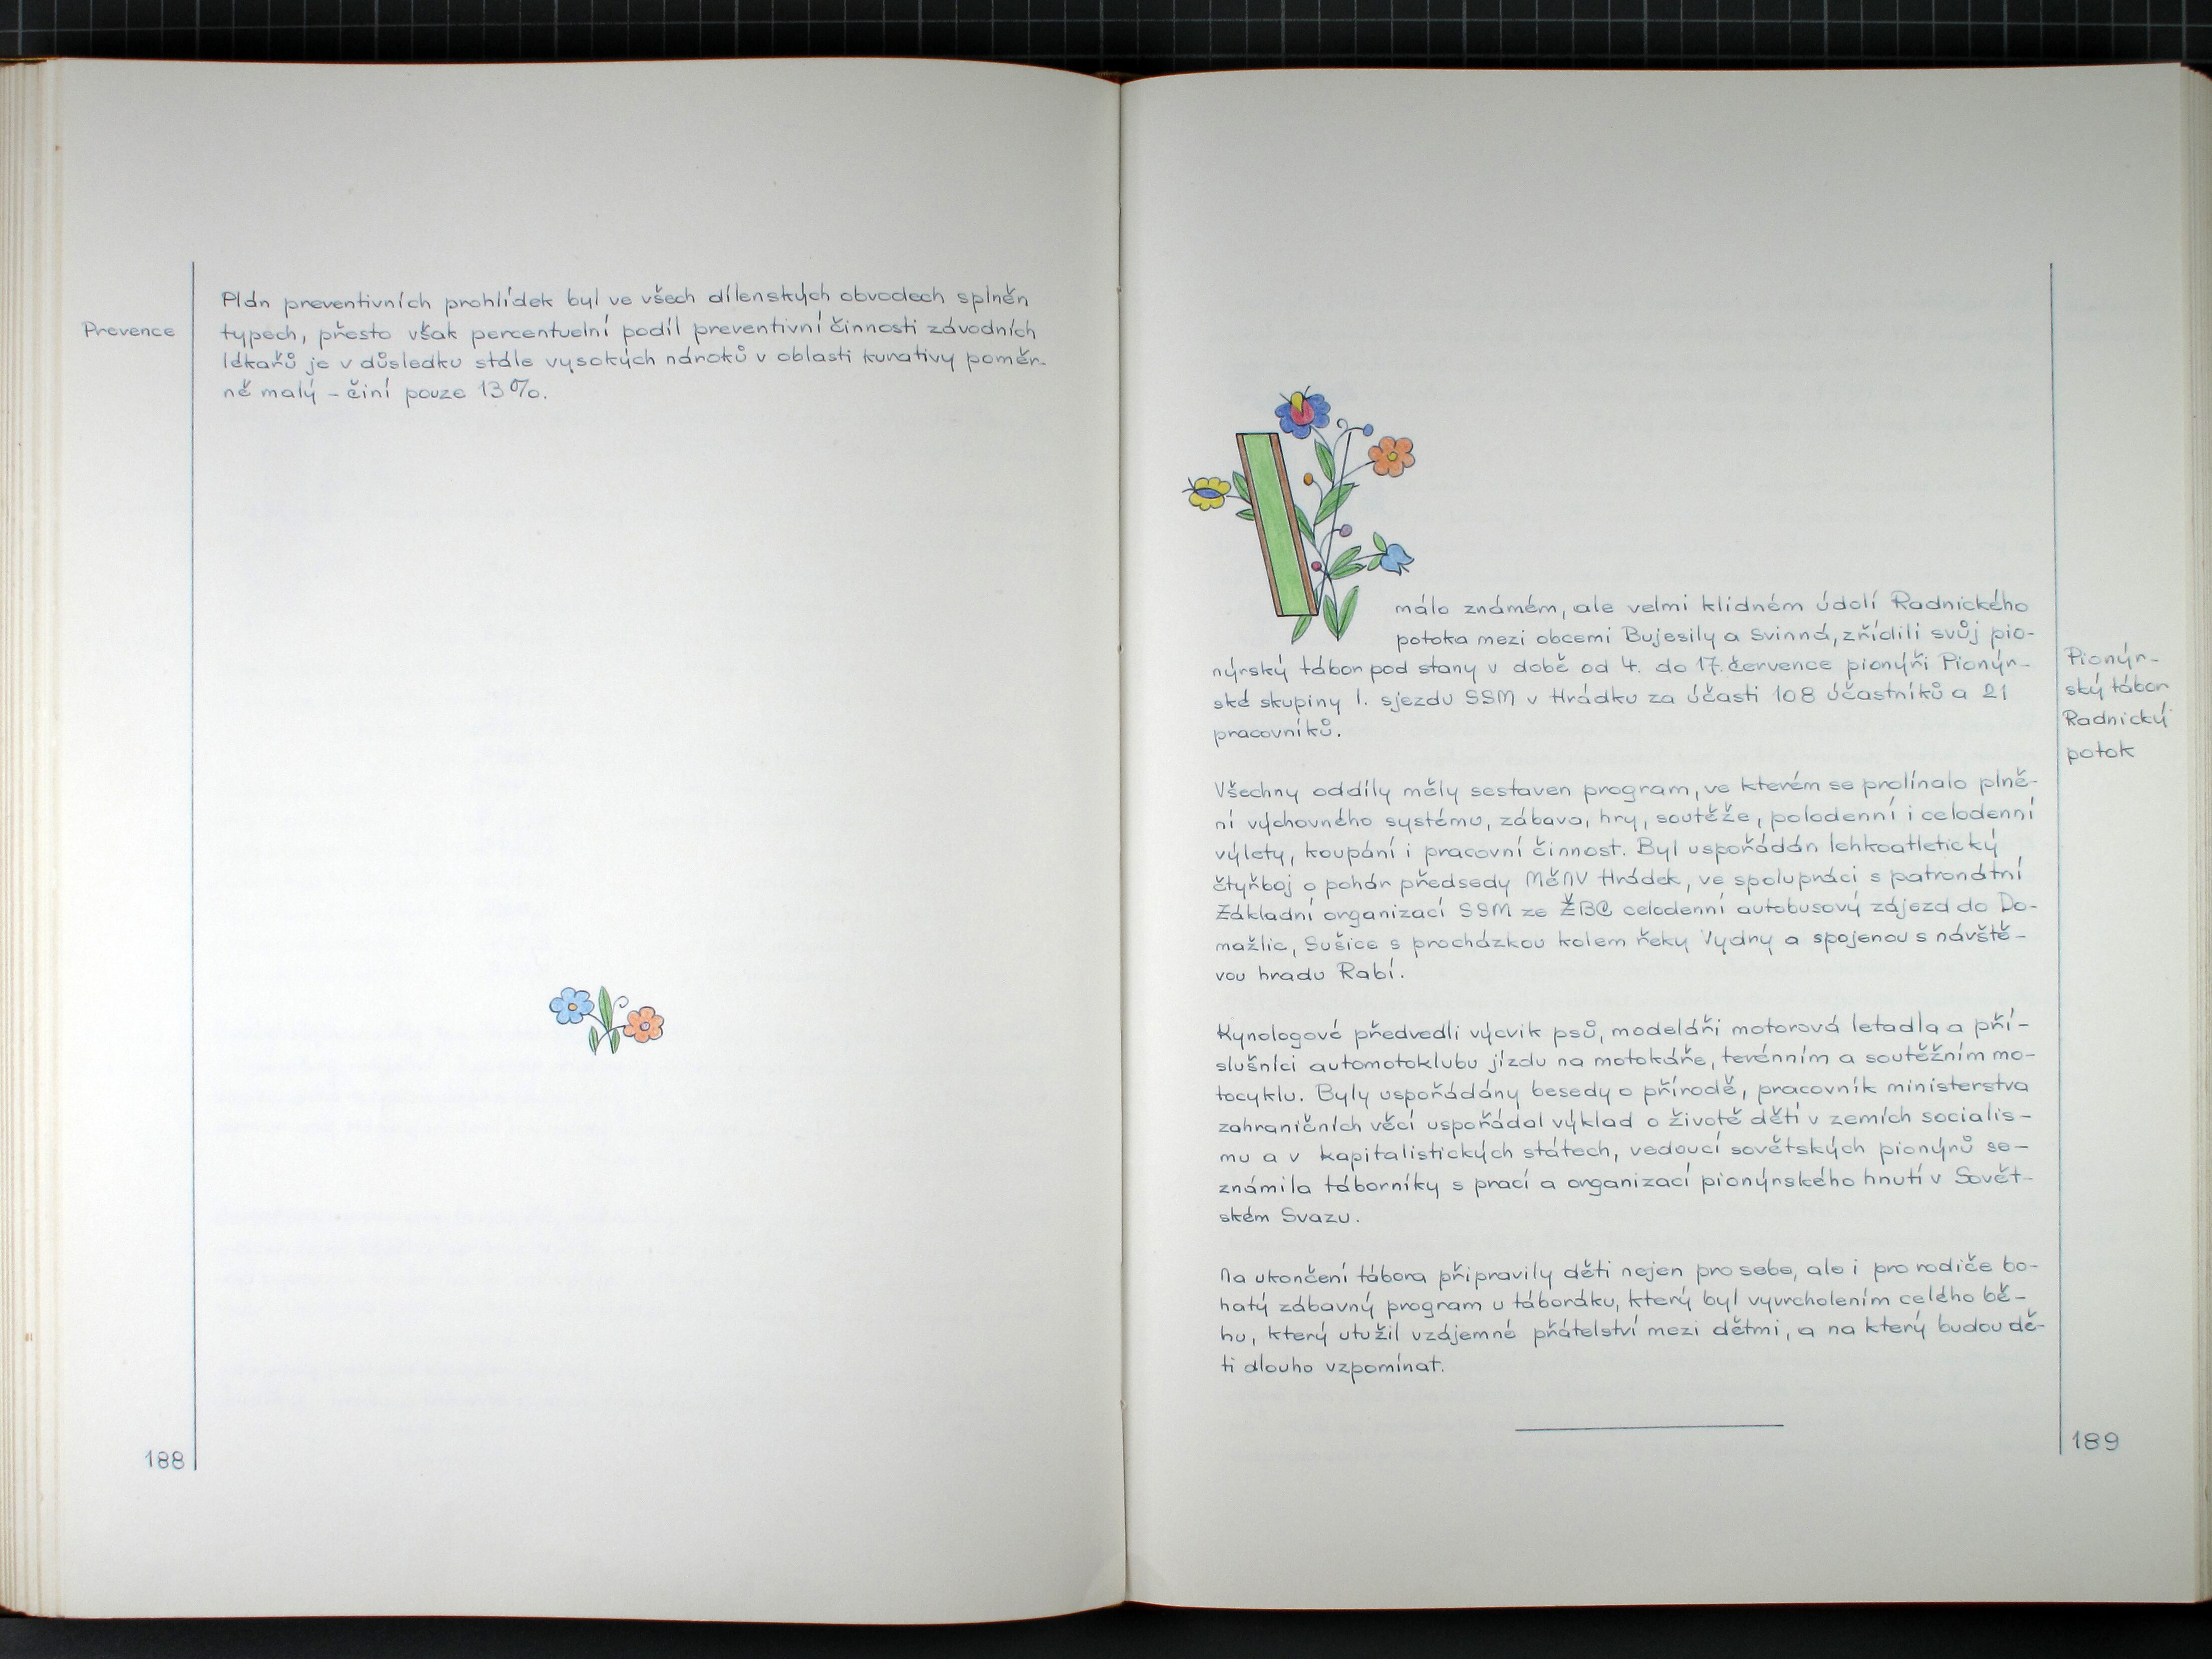 Prevence
Plán preventivních prohlídek byl ve všech dílenských obvodech splněn
typech, přesto však percentuelní podíl preventivní činnosti závodních
lékařů je v důsledku stále vysokých nároků v oblasti kurativy poměr-
ně malý – činí pouze 13%.
188
V
málo známém, ale velmi klidném údolí Radnického
potoka mezi obcemi Bujesily a Svinná, zřídili svůj pio-
nýrský tábor pod stany v době od 4. do 17. července pionýři Pionýr-
ské skupiny I. sjezdu SSM v Hrádku za účasti 108 účastníků a 21
pracovníků.
Pionýr-
ský tábor
Radnický
potok
Všechny oddíly měly sestaven program, ve kterém se prolínalo plně-
ní výchovného systému, zábava, hry, soutěže, polodenní i celodenní
výlety, koupání i pracovní činnost. Byl uspořádán lehkoatletický
čtyřboj o pohár předsedy MěNV Hrádek, ve spolupráci s patronátní
Základní organizací SSM ze ŽBC celodenní autobusový zájezd do Do-
mažlic, Sušice s procházkou kolem řeky Vydry a spojenou s návště-
vou hradu Rabí.
Kynologové předvedli výcvik psů, modeláři motorová letadla a pří-
slušníci automotoklubu jízdu na motokáře, terénním a soutěžním mo-
tocyklu. Byly uspořádány besedy o přírodě, pracovník ministerstva
zahraničních věcí uspořádal výklad o životě dětí v zemích socialis-
mu a v kapitalistických státech, vedoucí sovětských pionýrů se-
známila táborníky s prací a organizací pionýrského hnutí v Sovět-
ském Svazu.
Na ukončení tábora připravily děti nejen pro sebe, ale i pro rodiče bo-
hatý zábavný program u táboráku, který byl vyvrcholením celého bě-
hu, který utužil vzájemné přátelství mezi dětmi, a na který budou dě-
ti dlouho vzpomínat.
189